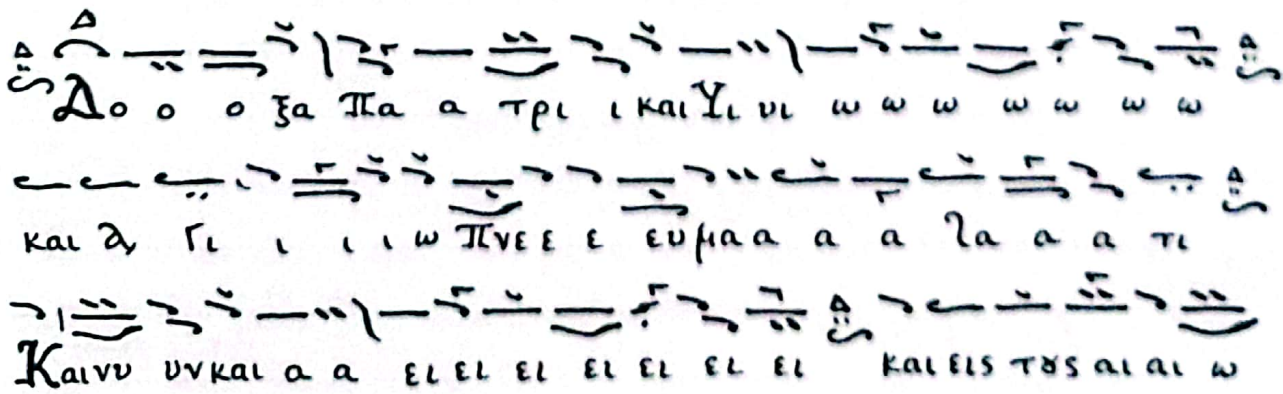 Δο ο ο ξα Πα α τρι ι και Υι υι ω ω ω ω ω ω ω
και Α γι ι ι ι ω Πνε ε ε ευ μα α α α Α α α α τι
Και νυ υν και α α ει ει ει ει ει ει ει και εις τȣς αι αι ω